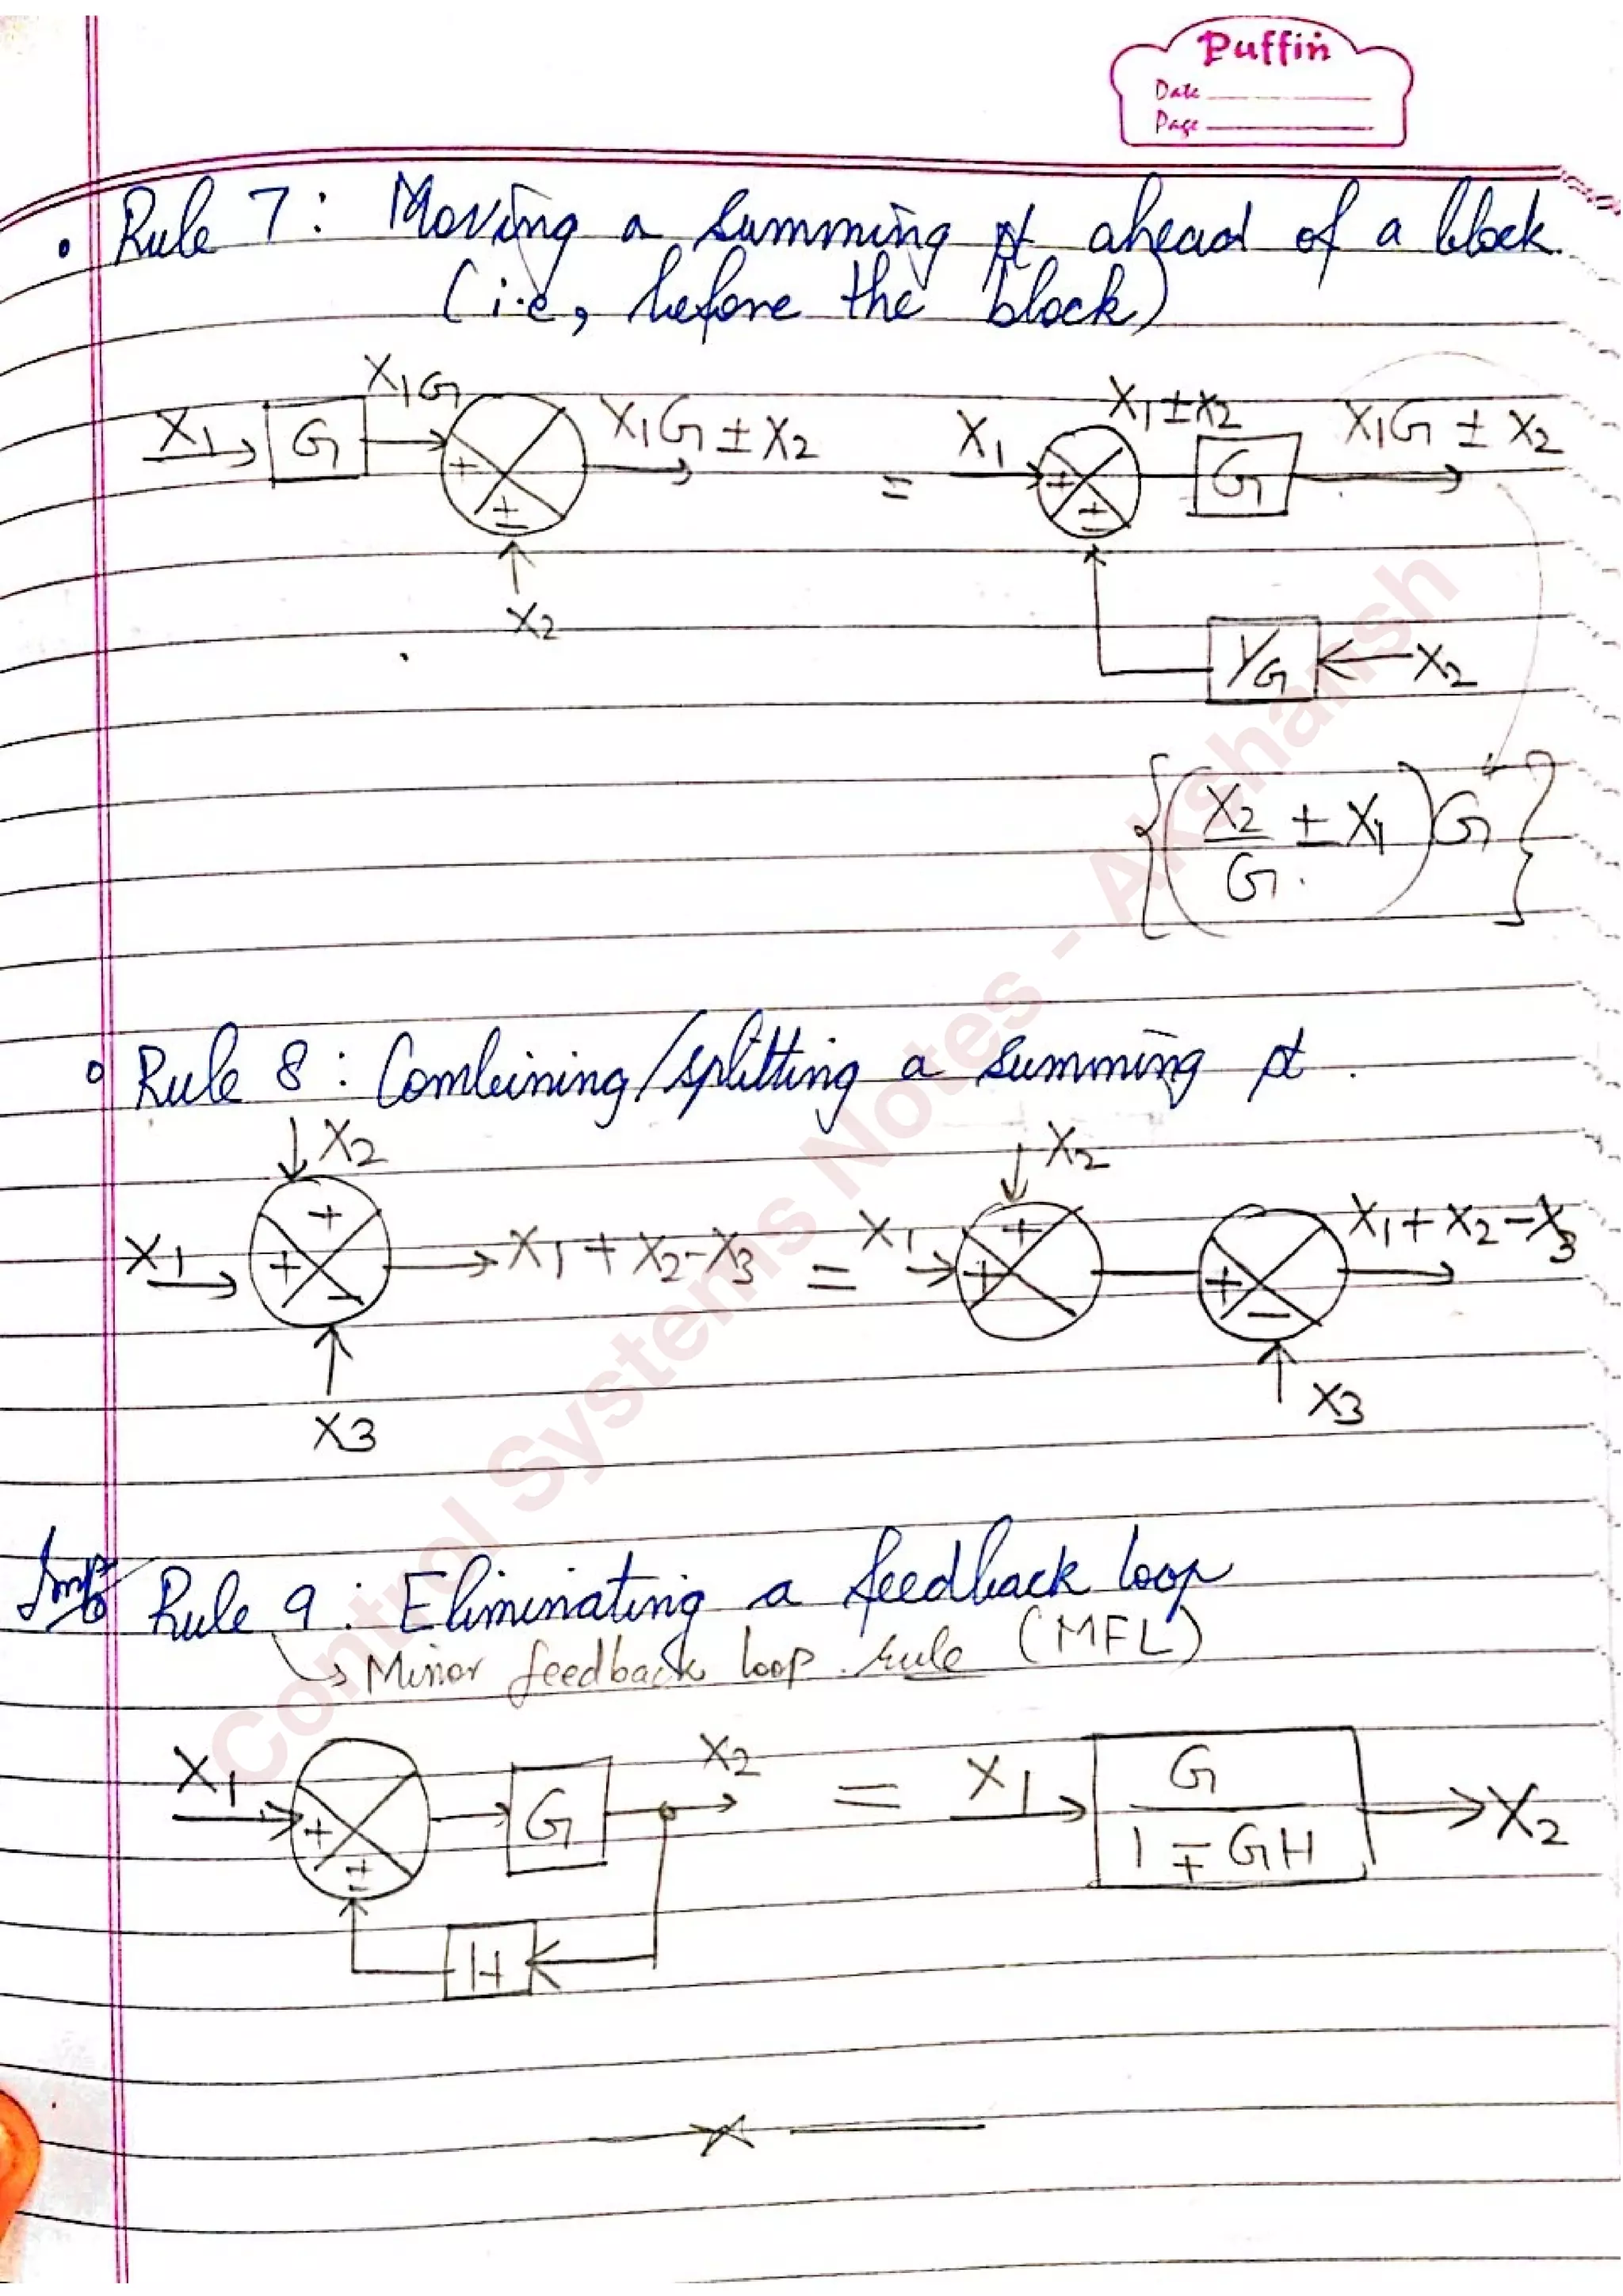 Puffin
Date
Page
• Rule 7: Moving a summing pt ahead of a block
(i.e, before the block)
X1 G X1G + ± X1G ± X2 X2
= X1 + ± X1±X2 G X1G ± X2
1/G X2
{(X2/G ± X1)G}
• Rule 8: Combining/splitting a summing pt.
X1 X2 X3 + + − X1 + X2 - X3 = X1 X2 + + + − X3 X1 + X2 - X3
Imp Rule 9: Eliminating a feedback loop
→ Minor feedback loop rule (MFL)
X1 + ± G X2 = X1 G / 1 ∓ GH X2
H
Control Systems Notes - Akshansh